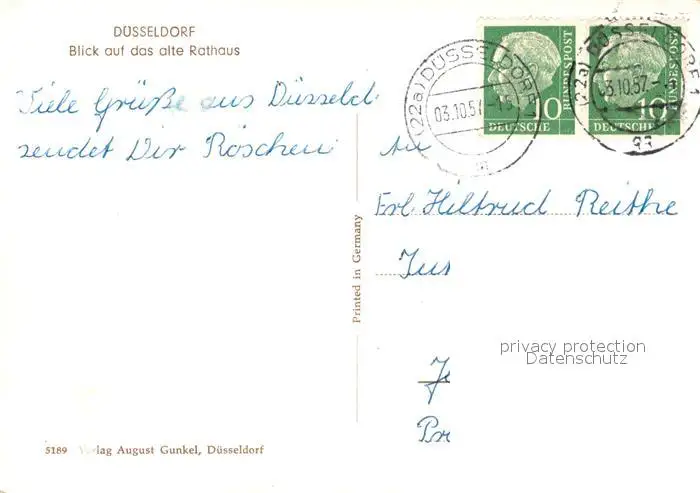 DÜSSELDORF
Blick auf das alte Rathaus
Viele Grüße aus Düsseld
sendet Dir Röschen
(22a) DÜSSELDORF 1
03.10.57
m
10
DEUTSCHE
BUNDESPOST
(22a) DÜSSELDORF 1
03.10.57
gg
10
DEUTSCHE
BUNDESPOST
An
Frl. Hiltrud Reithe
Printed in Germany
privacy protection
Datenschutz
5189 lag August Gunkel, Düsseldorf